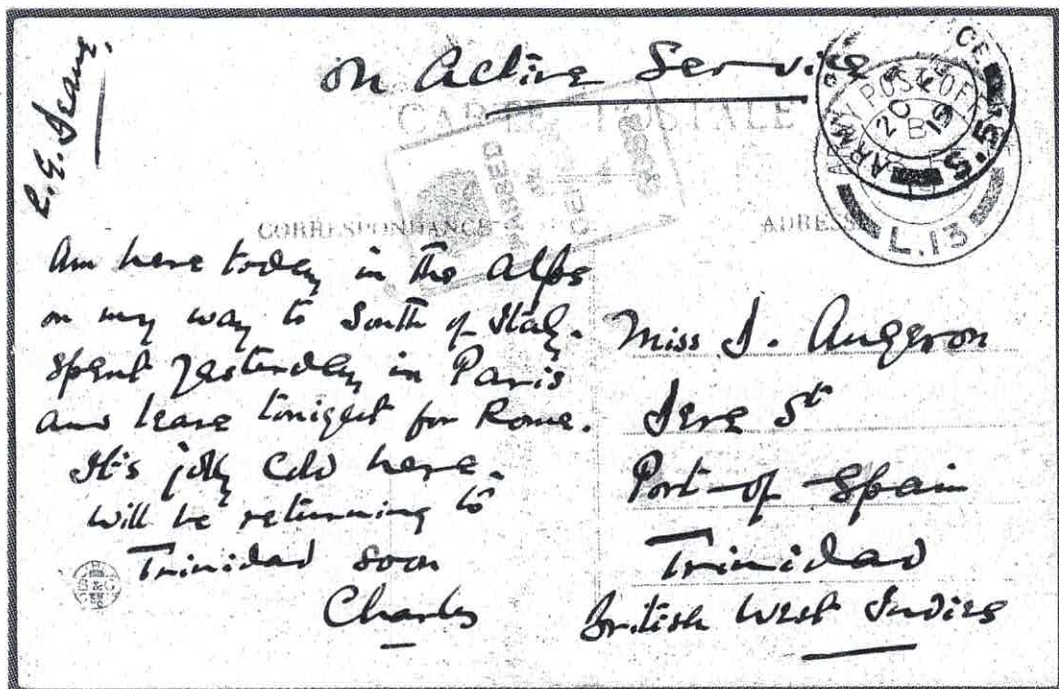 On Active Service
CARTE POSTALE
ARMY POST OFFICE
20 B 19
S.51
L.13
PASSED
CORRESPONDANCE
ADRESSE
Am here today in the Alps
on my way to South of Italy.
Spent yesterday in Paris
and leave tonight for Rome.
It's jolly cold here.
Will be returning to
Trinidad soon
Charles
Miss I. Augeron
Jere St
Port-of-Spain
Trinidad
British West Indies